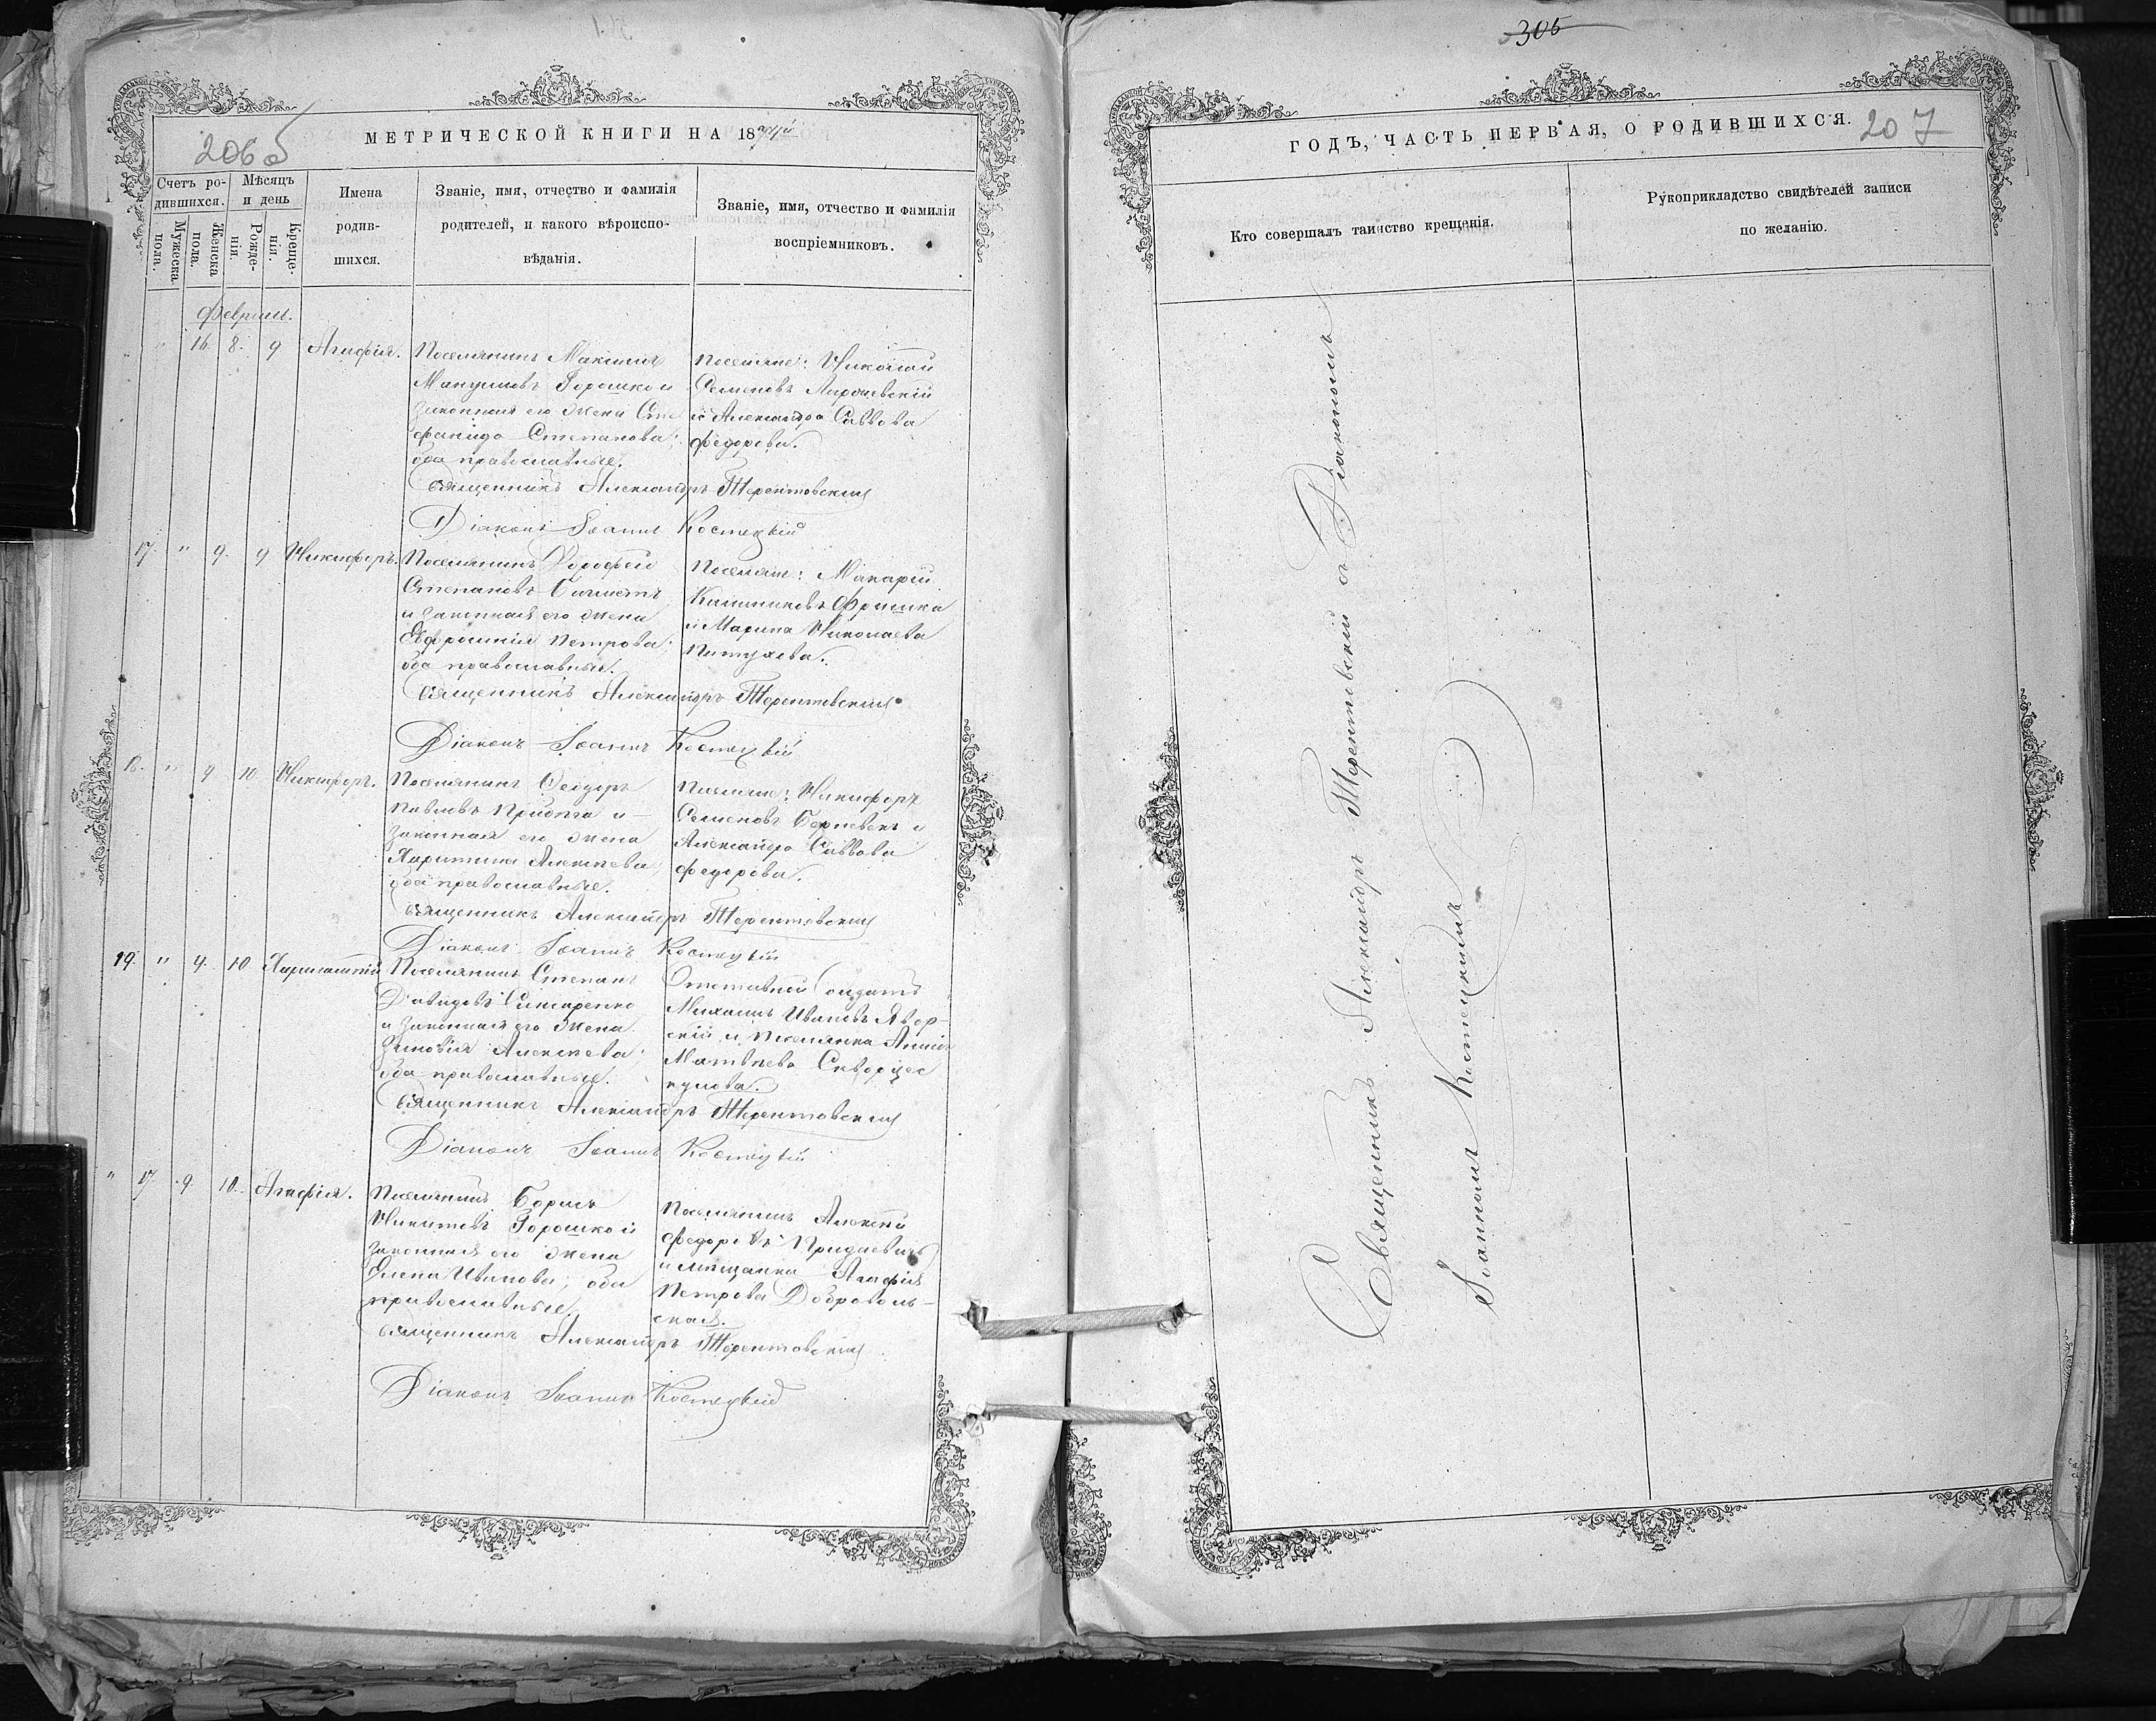 206 об
МЕТРИЧЕСКОЙ КНИГИ НА 18
Счетъ ро-
дившихся.
Мѣсяцъ
и день
Мужеска
пола.
Женска
пола.
Рожде-
нія.
Креще-
нія.
Имена
родив-
шихся.
Званіе, имя, отчество и фамилія
родителей, и какого вѣроиспо-
вѣданія.
Званіе, имя, отчество и фамилія
воспріемниковъ.
Февраль.
" 16. 8. 9 Агафія.
Поселянинъ Максимъ
Горошко и
законная его жена Сте
фанида Степанова;
оба православные.
Поселяне: Николай
Семеновъ
и Александра Саввова
Федорова.
Священникъ Александръ Терентовский
Діаконъ Іоаннъ Костецкій
17. " 9. 9 Никифоръ.
Поселянинъ Дорофей
Степановъ
и законная его жена
Евфросинія Петрова;
оба православные.
Поселяне: Макарій
и Марина Николаева
Священникъ Александръ Терентовский
Діаконъ Іоаннъ Костецкій
18. " 9 10. Никифоръ.
Поселянинъ Феодоръ
Павловъ и
законная его жена
Харитина Алексѣева,
оба православные.
Поселяне: Никифоръ
Семеновъ и
Александра Саввова
Федорова.
Священникъ Александръ Терентовский
Діаконъ Іоаннъ Костецкій
19. " 9. 10 Харлампій
Поселянинъ Степанъ
Давидовъ
и законная его жена
Зиновія Алексѣева;
оба православные.
Отставной солдатъ
Михаилъ Ивановъ Явор-
скій и поселянка Анна
Матвѣева
Священникъ Александръ Терентовский
Діаконъ Іоаннъ Костецкій
" 17. 9. 10. Агафія.
Поселянинъ Борисъ
Никитовъ Горошко и
законная его жена
Елена Иванова; оба
православные.
Поселянинъ Алексѣй
Федоровъ
и мѣщанка Агафія
Петрова Доброволь-
ская.
Священникъ Александръ Терентовский
Діаконъ Іоаннъ Костецкій
305
207
ГОДЪ, ЧАСТЬ ПЕРВАЯ, О РОДИВШИХСЯ.
Кто совершалъ таинство крещенія.
Рукоприкладство свидѣтелей записи
по желанію.
Священникъ Александръ Терентовский съ Діакономъ
Іоанномъ Костецкимъ